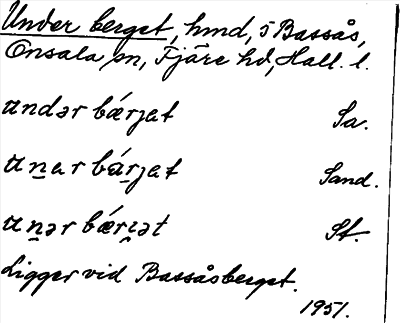 Under berget, hmd, 5 Bassås,
Onsala sn, Fjäre hd, Hall. l.
undər bǽrjet Sa.
uṉer bǽṟjet Sand.
uṉər bǽri̯ət St.
Ligger vid Bassåsberget.
1951.